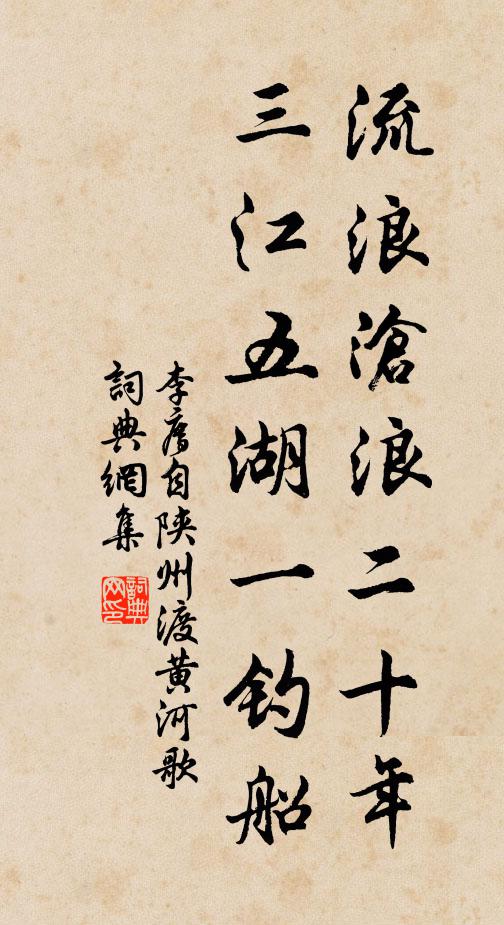 流浪滄浪二十年
三江五湖一钓船
李廌自陝州渡黄河歌
詞典網集
詞典网印